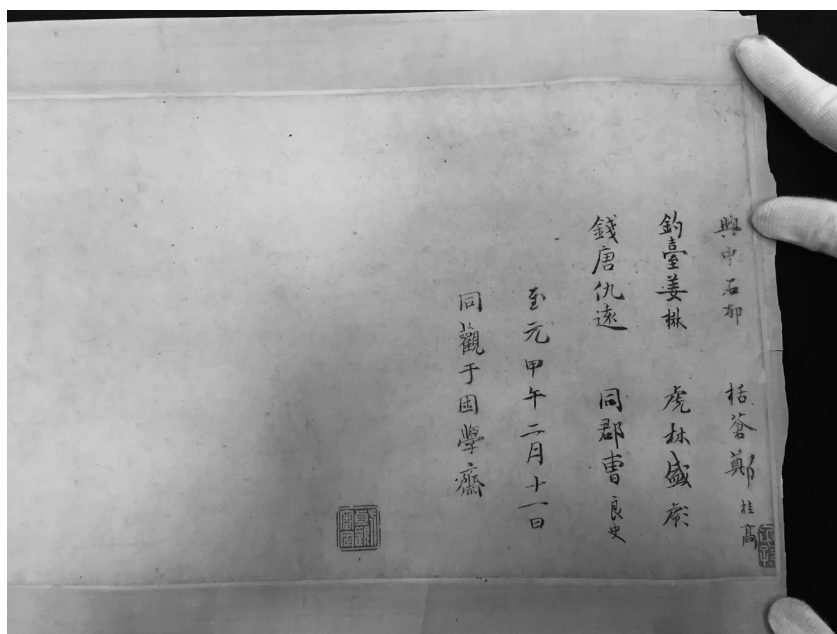 興中石都　栝蒼鄭桂高
釣臺姜楙　虎林盛彪
錢唐仇遠　同郡曹良史
至元甲午二月十一日
同觀于困學齋